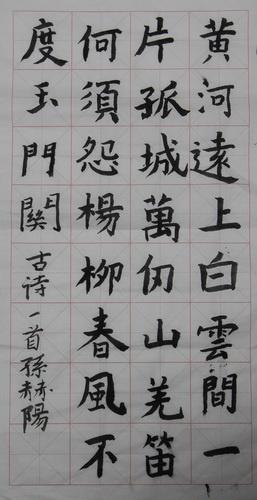 黄河遠上白雲間一
片孤城萬仞山羌笛
何須怨楊柳春風不
度玉門關古诗一首孫赫陽